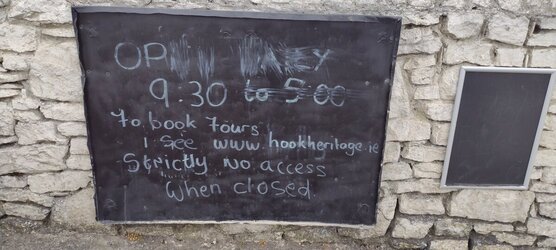 9:30 to 5:00
To book Tours
see www.hookheritage.ie
Strictly no access
When closed